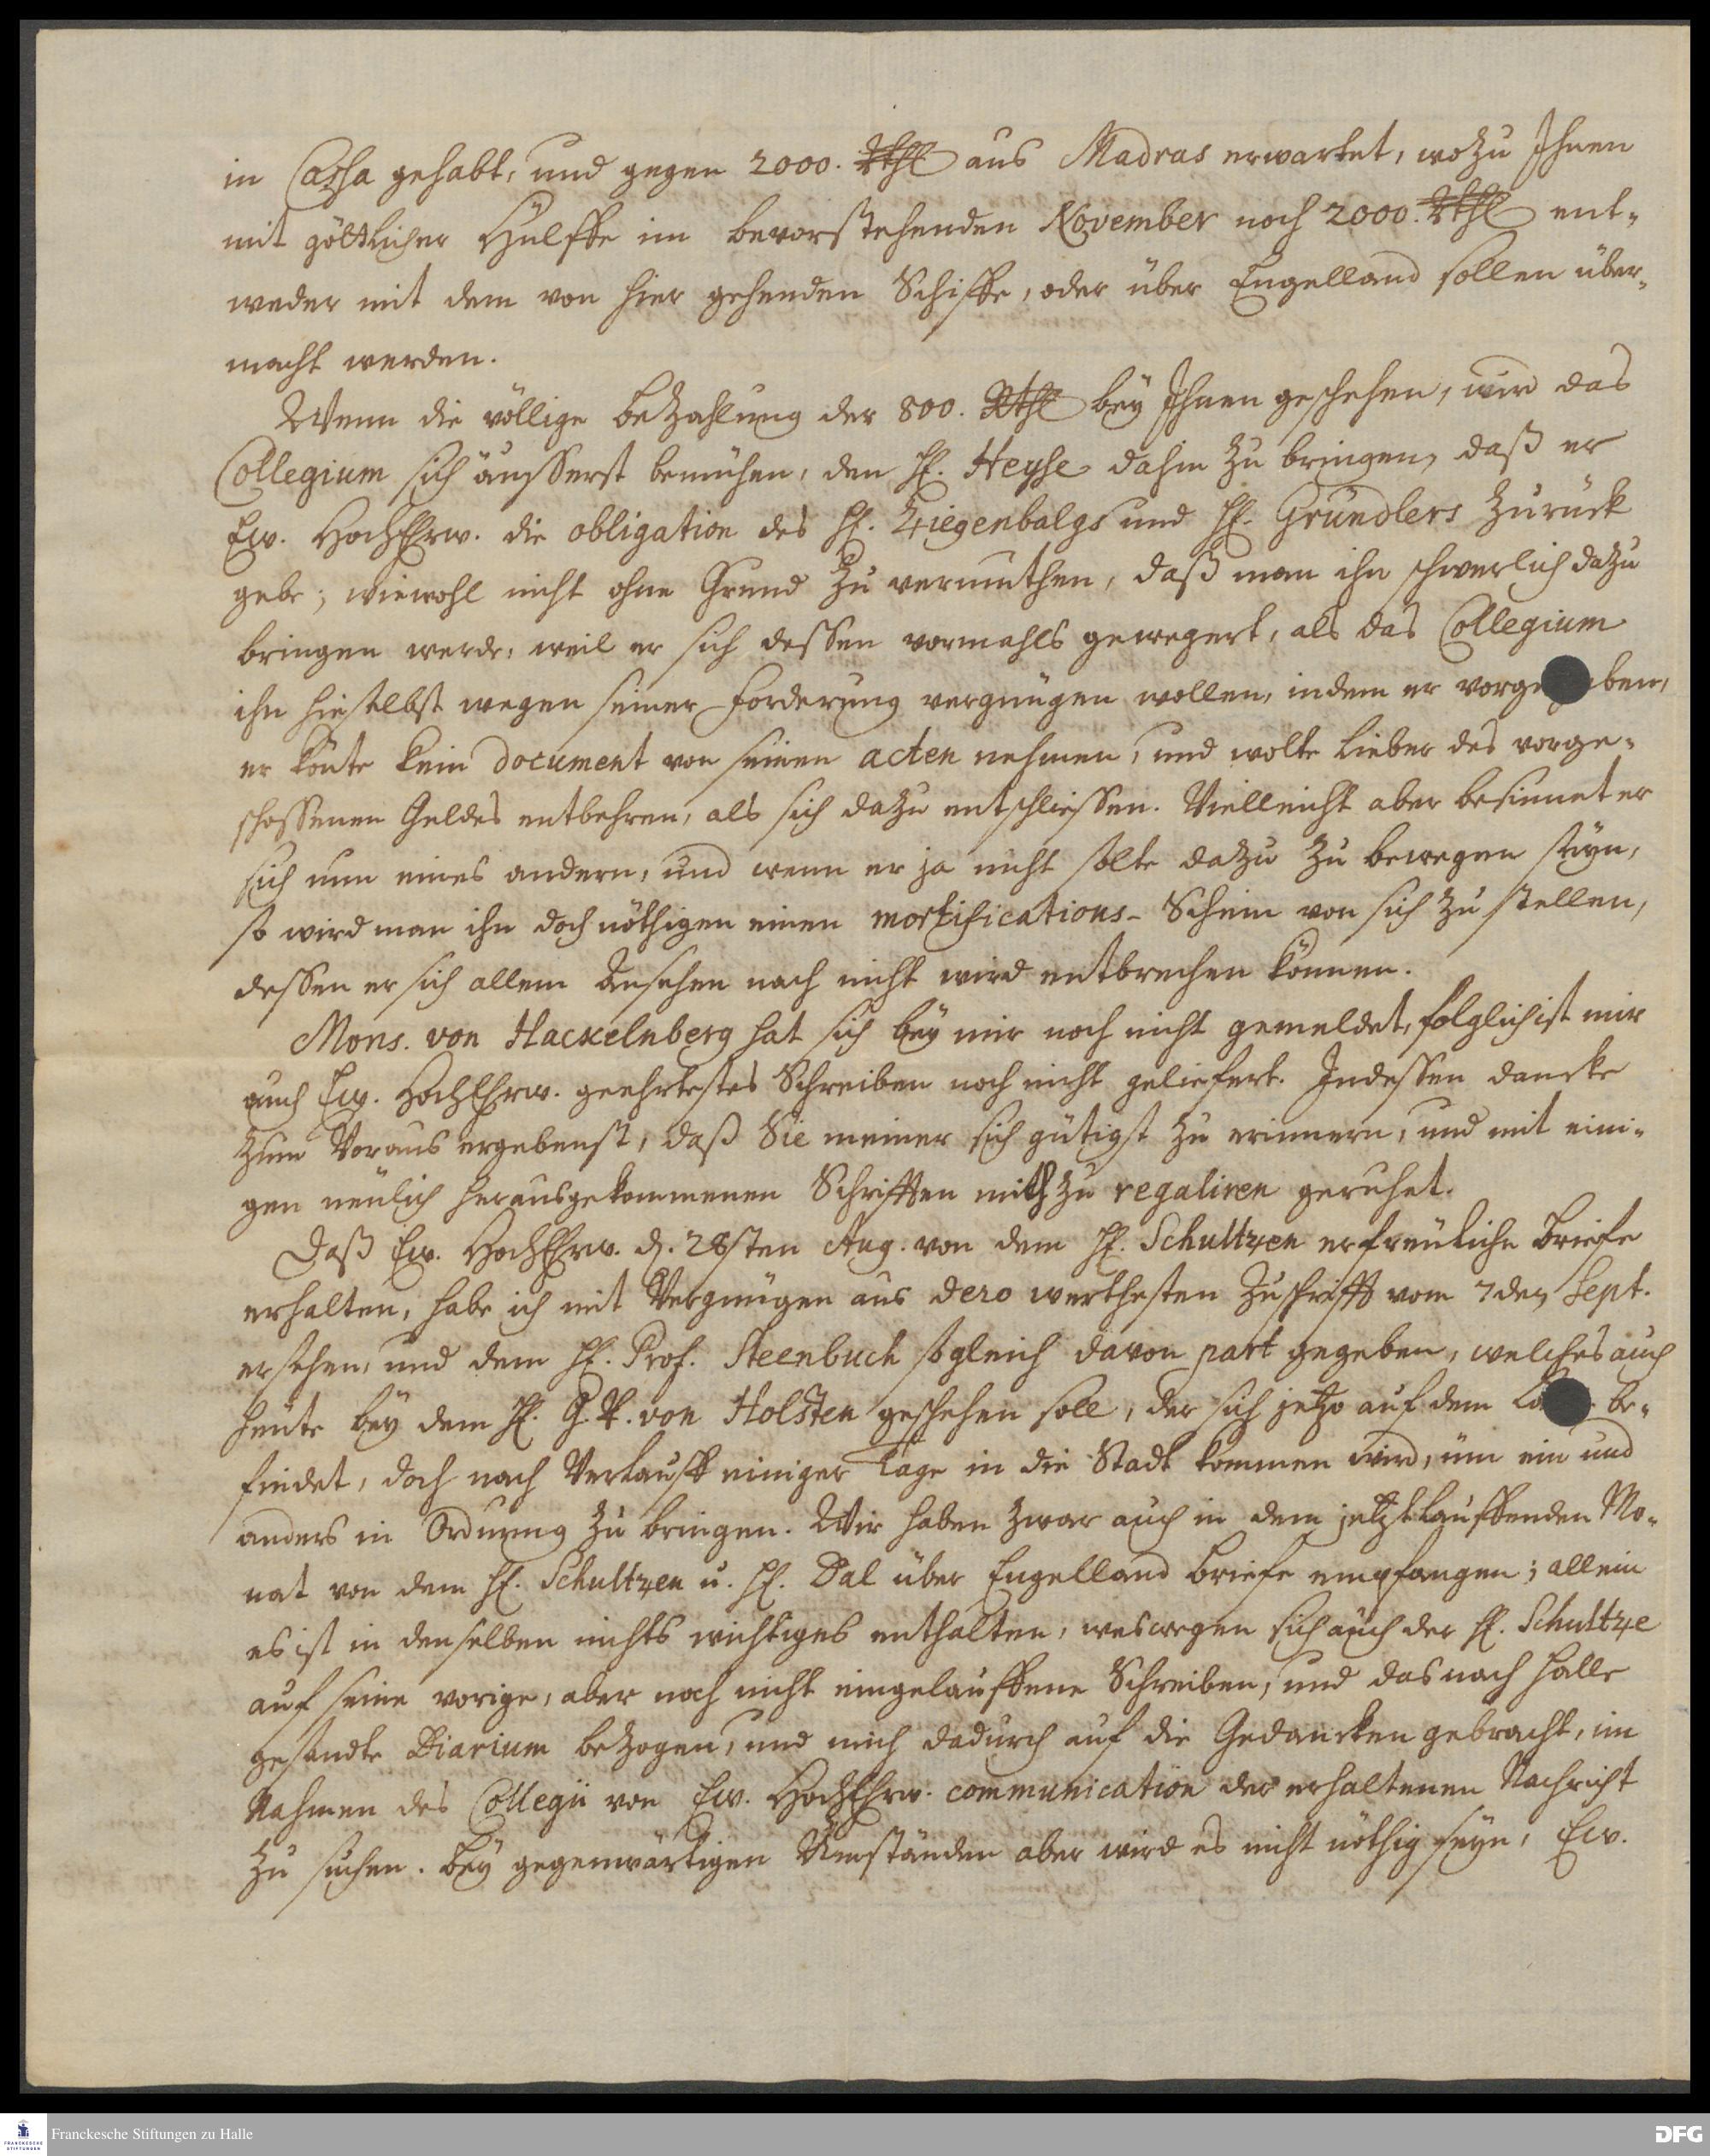 in Cassa gehabt, und gegen 2000. Rthl aus Madras erwartet, wozu Ihnen
mit göttlicher Hülffe im bevorstehenden November noch 2000. Rthl ent-
weder mit dem von hier gehenden Schiffe, oder über Engelland sollen über-
macht werden.
Wenn die völlige Bezahlung der 800. Rthl bey Ihnen geschehen, wird das
Collegium sich äusserst bemühen, den H. Heyse dahin zu bringen, daß er
Ew. HochEhrw. die obligation des H. Ziegenbalgs und H. Gründlers zurück
gebe; wiewohl nicht ohne Grund zu vermuthen, daß man ihn schwerlich dazu
bringen werde, weil er sich dessen vormahls gewegert, als das Collegium
ihn hieselbst wegen seiner Forderung vergnügen wollen, indem er vorgegeben,
er könte kein document von seinen acten nehmen, und wolte lieber des vorge-
schossenen Geldes entbehren, als sich dazu entschliessen. Vielleicht aber besinnet er
sich nun eines andern, und wenn er ja nicht solte dazu zu bewegen seyn,
so wird man ihn doch nöthigen einen mortifications-Schein von sich zu stellen,
dessen er sich allem Ansehen nach nicht wird entbrechen können.
Mons. von Hackelnberg hat sich bey mir noch nicht gemeldet, folglich ist mir
auch Ew. HochEhrw. geehrtestes Schreiben noch nicht geliefert. Indessen dancke
zum Voraus ergebenst, daß Sie meiner sich gütigst zu erinnern, und mit eini-
gen neulich herausgekommenen Schrifften mich zu regaliren geruhet.
Daß Ew. HochEhrw. d. 28sten Aug. von dem H. Schultzen erfreuliche Briefe
erhalten, habe ich mit Vergnügen aus dero werthesten Zuschrifft vom 7den Sept.
ersehen, und dem H. Prof. Steenbuch sogleich davon part gegeben, welches auch
heute bey dem H. G. R. von Holsten geschehen soll, der sich jetzo auf dem be-
findet, doch nach Verlauff einiger Tage in die Stadt kommen wird, um ein und
anders in Ordnung zu bringen. Wir haben zwar auch in dem jetztlauffenden Mo-
nat von dem H. Schultzen u. H. Dal über Engelland Briefe empfangen; allein
es ist in denselben nichts wichtiges enthalten, weswegen sich auch der H. Schultze
auf seine vorige, aber noch nicht eingelauffene Schreiben, und das nach Halle
gesandte Diarium bezogen, und mich dadurch auf die Gedancken gebracht, im
Nahmen des Collegii von Ew. HochEhrw. communication der erhaltenen Nachricht
zu suchen. Bey gegenwärtigen Umständen aber wird es nicht nöthig seyn, Ew.
Franckesche Stiftungen zu Halle
DFG